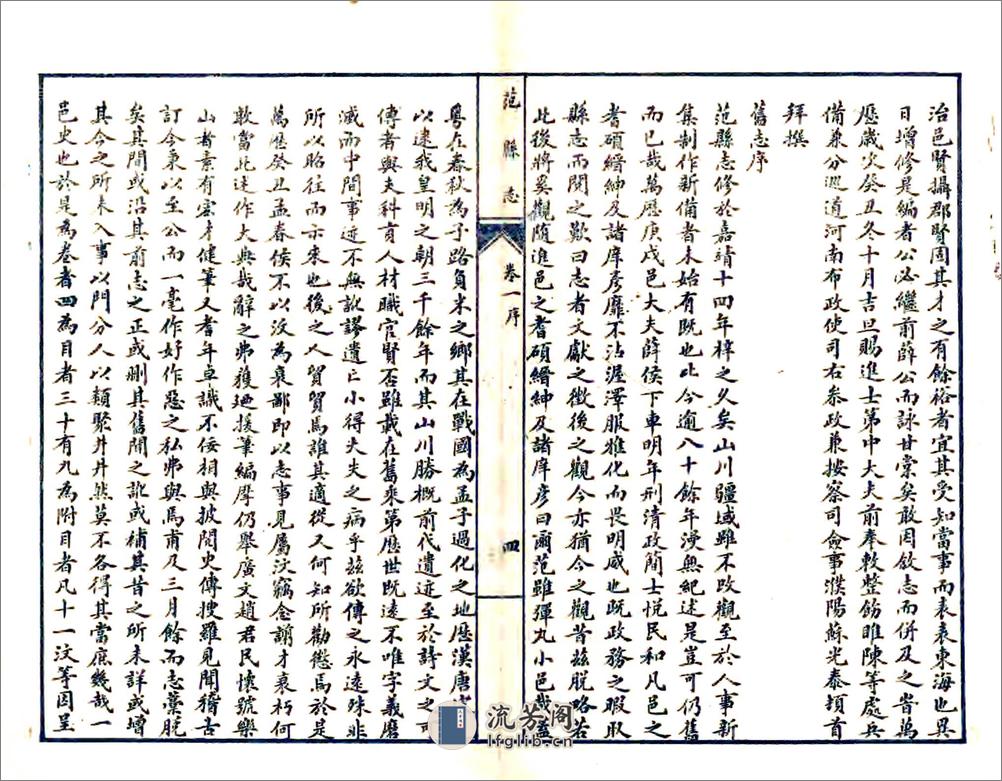 治邑賢攝郡賢固其才之有餘裕者宜其受知當事而表表東海也異
日增修是編者公必繼前薛公而詠甘棠矣敢因敘志而併及之旹萬
歷歲次癸丑冬十月吉旦賜進士第中大夫前奉敕整飭睢陳等處兵
備兼分巡道河南布政使司右叅政兼按察司僉事濮陽蘇光泰頓首
拜撰
舊志序
范縣志修於嘉靖十四年梓之久矣山川疆域雖不改觀至於人事新
集制作新備者未始有既也此今逾八十餘年漫無紀述是豈可仍舊
而已哉萬歷庚戌邑大夫薛侯下車明年刑清政簡士悅民和凡邑之
耆碩縉紳及諸庠彥靡不沾渥澤服雅化而畏明威也既政務之暇取
縣志而閱之歎曰志者文獻之徵後之觀今亦猶今之觀昔茲脫略若
此後將奚觀隨進邑之耆碩縉紳及諸庠彥曰爾范雖彈丸小邑哉
范縣志
卷一序
四
粵在春秋為子路負米之鄉其在戰國為孟子過化之地歷漢唐
以逮我皇明之朝三千餘年而其山川勝概前代遺迹至於詩文之可
傳者與夫科貢人材職官賢否雖載在舊乘第歷世既遠不唯字義磨
滅而中間事迹不無訛謬遺亡小得大失之病乎茲欲傳之永遠殊非
所以昭往而示來也後之人貿貿焉誰其適從又何知所勸懲焉於是
萬歷癸丑孟春侯不以汶為衰鄙即以志事見屬汶竊念謭才衰朽何
敢當此述作大典哉辭之弗獲廼援筆編摩仍舉廣文趙君民懷號樂
山者素有宏才健筆又耆年卓識不佞相與披閱史傳搜羅見聞稽古
訂今秉以至公而一毫作好作惡之私弗與焉甫及三月餘而志藁脫
矣其間或沿其前志之正或刪其舊聞之訛或補其昔之所未詳或增
其今之所未入事以門分人以類聚井井然莫不各得其當庶幾哉一
邑史也於是為卷者四為目者三十有九為附目者凡十一汶等因呈
流芳阁
lfglib.cn